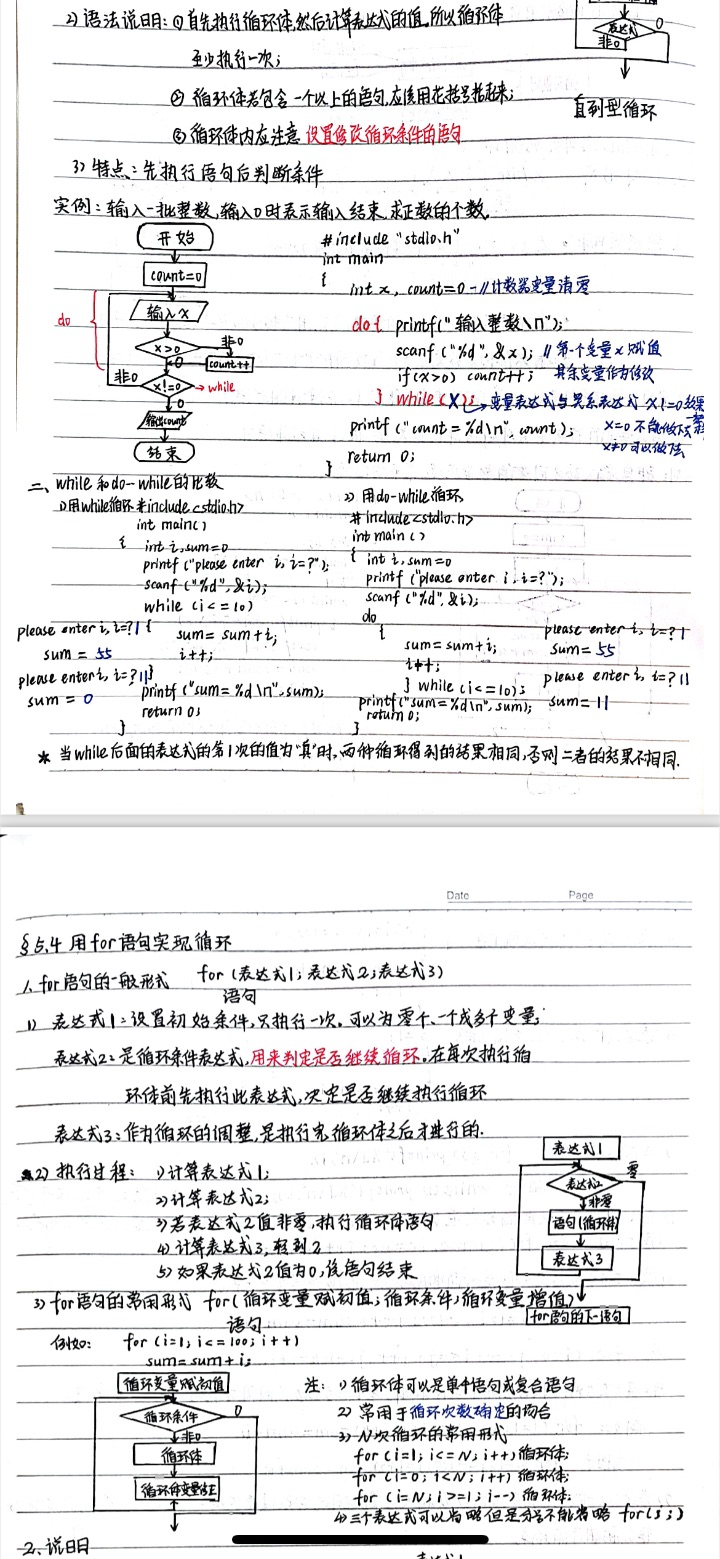 2) 语法说明: ① 首先执行循环体,然后计算表达式的值.所以循环体
至少执行一次;
② 循环体若包含一个以上的语句,应该用花括号括起来;
③ 循环体内应注意 设置修改循环条件的语句
表达式
0
非0
直到型循环
3) 特点: 先执行语句后判断条件
实例: 输入一批整数,输入0时表示输入结束,求正数的个数.
开始
count=0
do
输入x
x>0
非0
0
count++
非0
x!=0
while
0
输出count
结束
#include "stdio.h"
int main
{
int x, count=0 - // 计数器变量清零
do { printf(" 输入整数\n");
scanf ("%d", &x); // 第一个变量x赋值
if(x>0) count++; 其余变量作为修改
} while (x); 变量表达式与关系表达式 x!=0效果
printf ("count = %d\n", count); x=0 不能做下去
return 0; x≠0 可以做下去
}
二、while 和do-while的比较
1) 用while循环 #include <stdio.h>
int main()
{ int i,sum=0
printf ("please enter i, i=?");
scanf ("%d",&i);
while (i<=10)
{ sum= sum+i;
i++;
}
printf ("sum= %d \n", sum);
return 0;
}
please enter i, i=?1
sum = 55
please enter i, i=?11
sum = 0
2) 用do-while循环
# include <stdio.h>
int main ()
{ int i,sum=0
printf ("please enter i, i=?");
scanf ("%d",&i);
do
{
sum=sum+i;
i++;
} while (i<=10);
printf("sum=%d\n", sum);
return 0;
}
please enter i, i=?1
sum= 55
please enter i, i=?11
sum=11
* 当while后面的表达式的第1次的值为"真"时,两种循环得到的结果相同,否则二者的结果不相同.
Date Page
§5.4 用for语句实现循环
1. for语句的一般形式 for (表达式1; 表达式2;表达式3)
语句
1) 表达式1:设置初始条件,只执行一次.可以为零个、一个或多个变量;
表达式2:是循环条件表达式,用来判定是否继续循环.在每次执行循
环体前先执行此表达式,决定是否继续执行循环
表达式3:作为循环的调整,是执行完循环体之后才进行的.
2) 执行过程: 1) 计算表达式1;
2) 计算表达式2;
3) 若表达式2值非零,执行循环体语句
4) 计算表达式3,转到2
5) 如果表达式2值为0,该语句结束
表达式1
表达式2
零
非零
语句(循环体)
表达式3
for语句的下一语句
3) for语句的常用形式 for( 循环变量赋初值; 循环条件; 循环变量增值)
语句
例如: for (i=1; i<=100; i++)
sum=sum+i;
循环变量赋初值
循环条件
0
非0
循环体
循环体变量修正
注: 1) 循环体可以是单个语句或复合语句
2) 常用于循环次数确定的场合
3) N次循环的常用形式
for (i=1; i<=N; i++) 循环体;
for (i=0; i<N; i++) 循环体;
for (i=N; i>=1; i--) 循环体;
4) 三个表达式可以省略但是分号不能省略 for(;;)
2. 说明